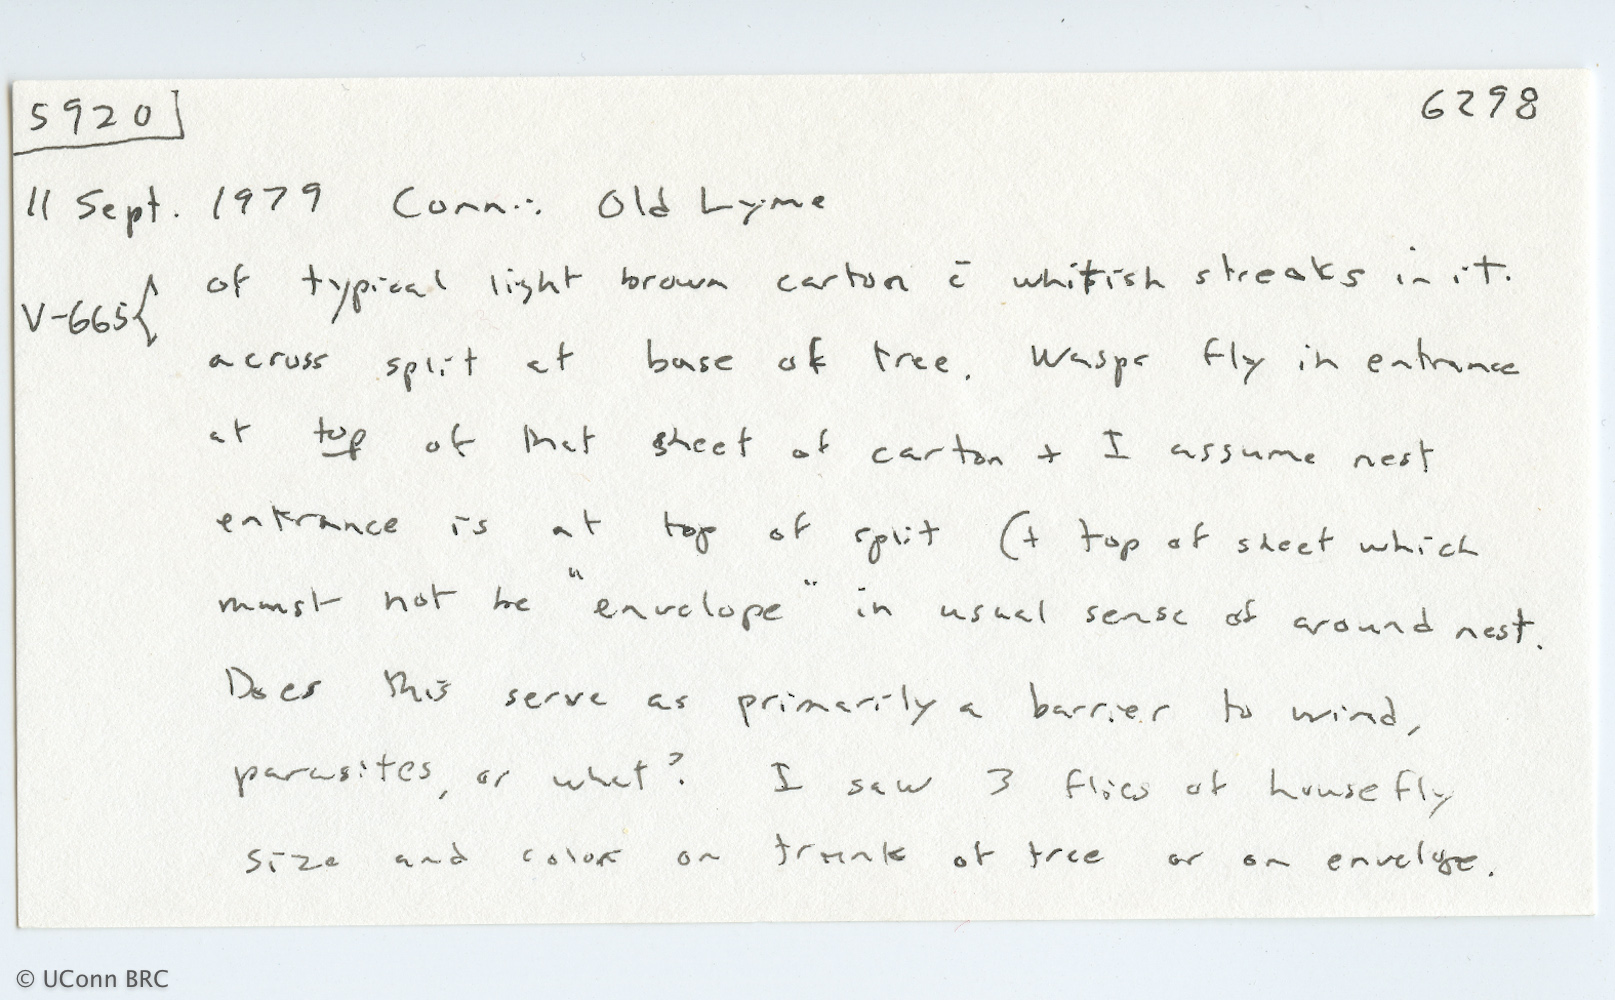 5920 6298
11 Sept. 1979 Conn.: Old Lyme
V-665{ of typical light brown carton c̄ whitish streaks in it.
across split at base of tree. Wasps fly in entrance
at top of that sheet of carton + I assume nest
entrance is at top of split (+ top of sheet which
must not be "envelope" in usual sense of around nest.
Does this serve as primarily a barrier to wind,
parasites, or what? I saw 3 flies of housefly
size and color on trunk of tree or on envelope.
© UConn BRC